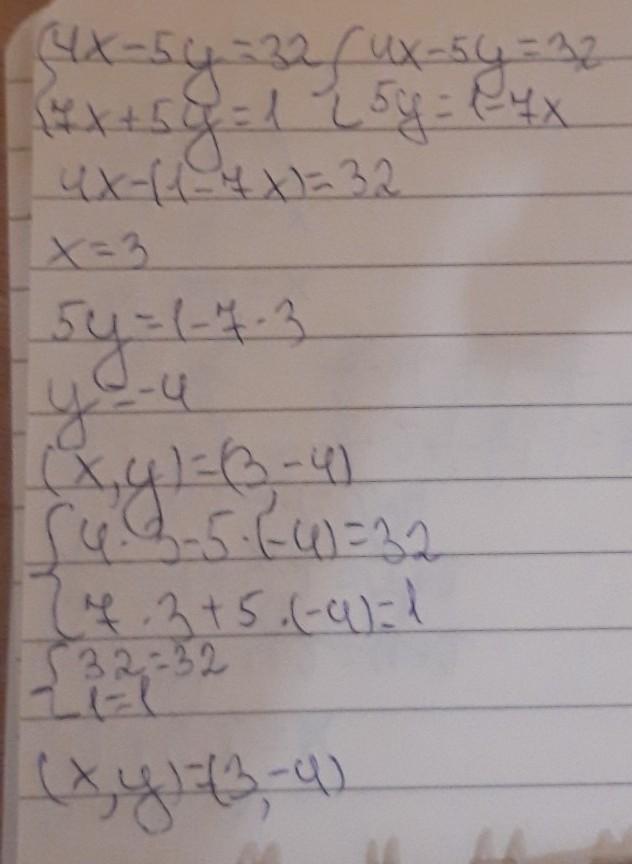 {4x-5y=32 {4x-5y=32
{7x+5y=1 {5y=1-7x
4x-(1-7x)=32
x=3
5y=1-7·3
y=-4
(x,y)=(3,-4)
{4·3-5·(-4)=32
{7·3+5·(-4)=1
{32=32
{1=1
(x,y)=(3,-4)